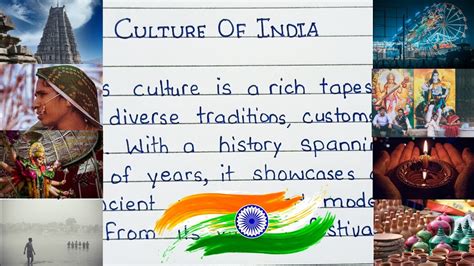 CULTURE OF INDIA
s culture is a rich tapes
diverse traditions, customs
With a history spanni
of years, it showcases a
cient mode
From its festiva